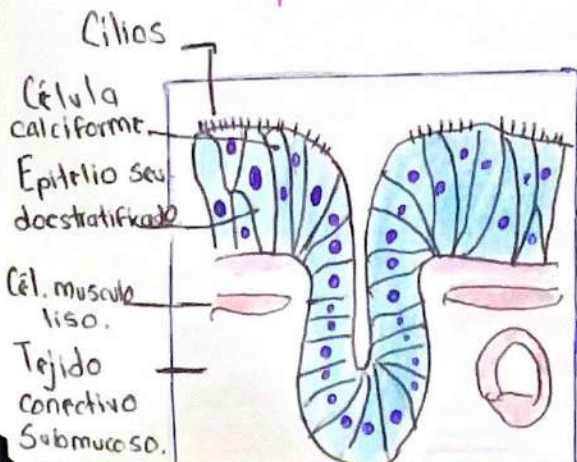 Cilios
Célula
calciforme
Epitelio seu
docstratificado
Cél. musculo
liso.
Tejido
conectivo
Submucoso.